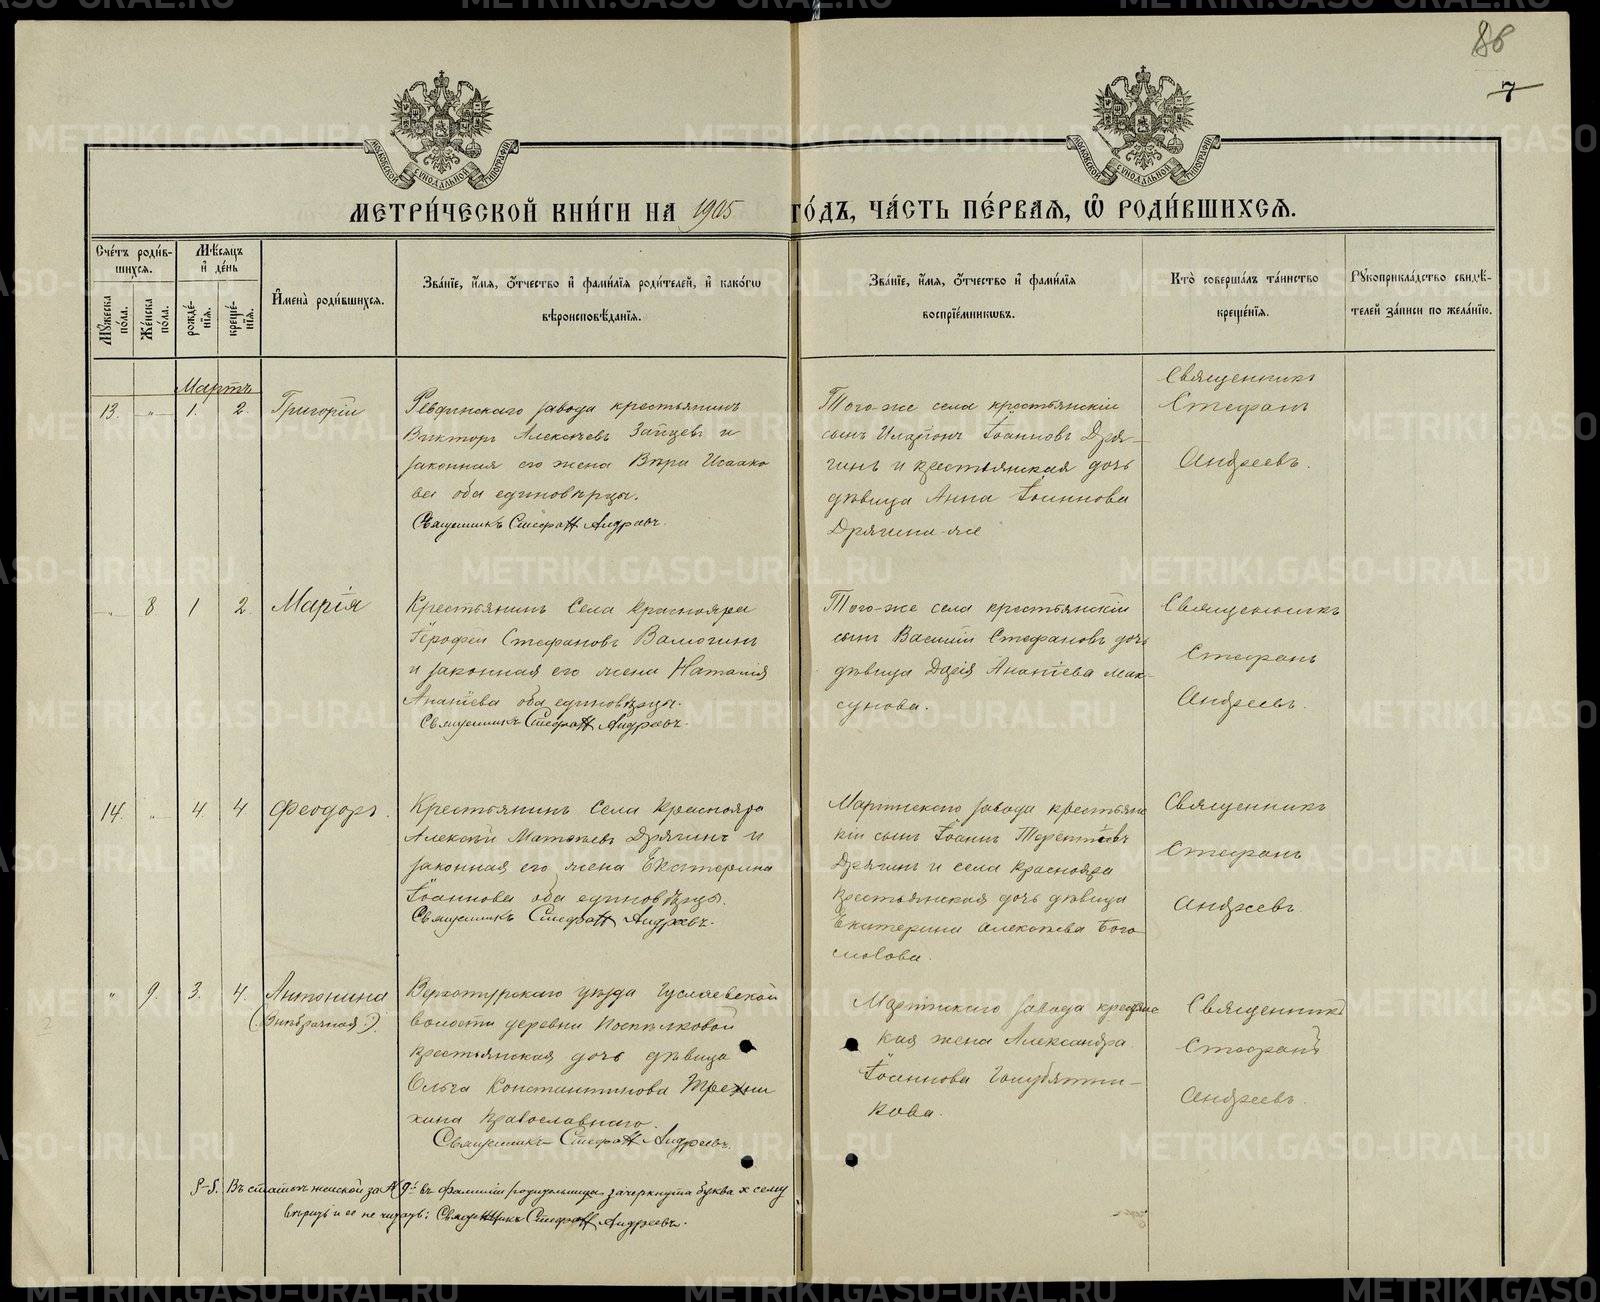 86
7
МОСКОВСКОЙ СѴНОДАЛЬНОЙ ТИПОГРАФІИ
МОСКОВСКОЙ СѴНОДАЛЬНОЙ ТИПОГРАФІИ
МЕТРИ́ЧЕСКОЙ КНИ́ГИ НА 1905 ГО́ДЪ, ЧА́СТЬ ПЕ́РВАЯ, Ѡ РОДИ́ВШИХСЯ.
Сче́тъ роди́в-
шихся.
Мѣ́сяцъ
и҆ де́нь
Мꙋ́жеска по́ла.
Же́нска по́ла.
рожде́-
нїя.
креще́-
нїя.
И҆мена̀ роди́вшихся.
Зва́нїе, и҆́мя, ѻ҆́тчество и҆ фами́лїя роди́телей, и҆ како́гѡ
вѣроисповѣ́данїя.
Зва́нїе, и҆́мя, ѻ҆́тчество и҆ фами́лїя
воспрїе́мникѡвъ.
Кто̀ соверша́лъ та́инство
креще́нїя.
Рꙋкоприкла́дство свидѣ́-
телей за́писи по жела́нїю.
Мартъ
13. " 1. 2. Григорій
Ревдинскаго завода крестьянинъ
Викторъ Алексѣевъ Зайцевъ и
законная его жена Вѣра Исаако
ва оба единовѣрцы.
Священникъ Стефанъ Андреевъ.
Того-же села крестьянскій
сынъ Иларіонъ Іоанновъ Дря-
гинъ и крестьянская дочь
дѣвица Анна Іоаннова
Дрягина-же
Священникъ
Стефанъ
Андреевъ.
" 8 1 2. Марія
Крестьянинъ села Краснояра
Іерофей Стефановъ Валогинъ
и законная его жена Наталія
Ананіева оба единовѣрцы.
Священникъ Стефанъ Андреевъ.
Того-же села крестьянскій
сынъ Василій Стефановъ дочь
дѣвица Дарія Ананіева Мак-
сунова.
Священникъ
Стефанъ
Андреевъ.
14. " 4. 4 Феодоръ.
Крестьянинъ села Краснояра
Алексѣй Матвѣевъ Дрягинъ и
законная его жена Екатерина
Іоаннова оба единовѣрцы.
Священникъ Стефанъ Андреевъ.
Маріинскаго завода крестьянс
кій сынъ Іоаннъ Терентіевъ
Дрягинъ и села Краснояра
крестьянская дочь дѣвица
Екатерина Алексѣева Бого
молова.
Священникъ
Стефанъ
Андреевъ
" 9. 3. 4. Антонина
(Внѣбрачная:).
Верхотурскаго уѣзда
волости деревни
крестьянская дочь дѣвица
Ольга Константинова Трехни
хина православнаго.
Священникъ Стефанъ Андреевъ.
Маріинскаго завода крестьянс
кая жена Александра
Іоаннова Голубятни-
кова.
Священникъ
Стефанъ
Андреевъ.
P-S. Въ статьѣ женской за № 9-й въ фамиліи родильницы зачеркнута буква х сему
вѣрить и ее не читать: Священникъ Стефанъ Андреевъ.
METRIKI.GASO-URAL.RU